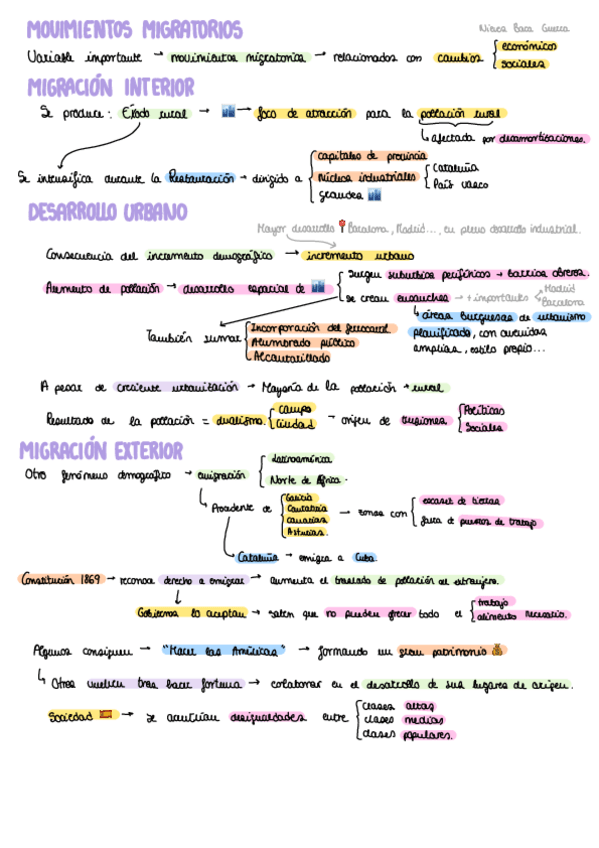 MOVIMIENTOS MIGRATORIOS
Nieves Baca Guerra
Variable importante → movimientos migratorios → relacionados con cambios { económicos
sociales
MIGRACIÓN INTERIOR
Se produce: Éxodo rural → foco de atracción para la población rural
↳ afectada por desamortizaciones.
Se intensifica durante la Restauración → dirigido a { capitales de provincia
núcleos industriales { Cataluña
País Vasco
grandes
DESARROLLO URBANO
Mayor desarrollo Barcelona, Madrid..., en pleno desarrollo industrial.
Consecuencia del incremento demográfico → incremento urbano
Aumento de población → desarrollo espacial de { Surgen suburbios periféricos → barrios obreros.
Se crean ensanches → + importantes Madrid
Barcelona
↳ áreas burguesas de urbanismo
planificado, con avenidas
amplias, estilo propio...
También sumar { Incorporación del ferrocarril
Alumbrado público
Alcantarillado
A pesar de creciente urbanización → Mayoría de la población → rural
Resultado de la población = dualismo { Campo
Ciudad → origen de tensiones { Políticas
Sociales
MIGRACIÓN EXTERIOR
Otro fenómeno demográfico → emigración { Latinoamérica
Norte de África.
↳ Procedente de { Galicia
Cantabria
Canarias
Asturias → zonas con { escasez de tierras
falta de puestos de trabajo
Cataluña → emigra a Cuba.
Constitución 1869 → reconoce derecho a emigrar → aumenta el traslado de población al extranjero.
Gobiernos lo aceptan → saben que no pueden ofrecer todo el { trabajo
alimento necesario.
Algunos consiguen → "Hacer las Américas" → formando un gran patrimonio
↳ Otros vuelven tras hacer fortuna → colaborar en el desarrollo de sus lugares de origen.
Sociedad → se acentúan desigualdades entre { clases altas
clases medias
clases populares.